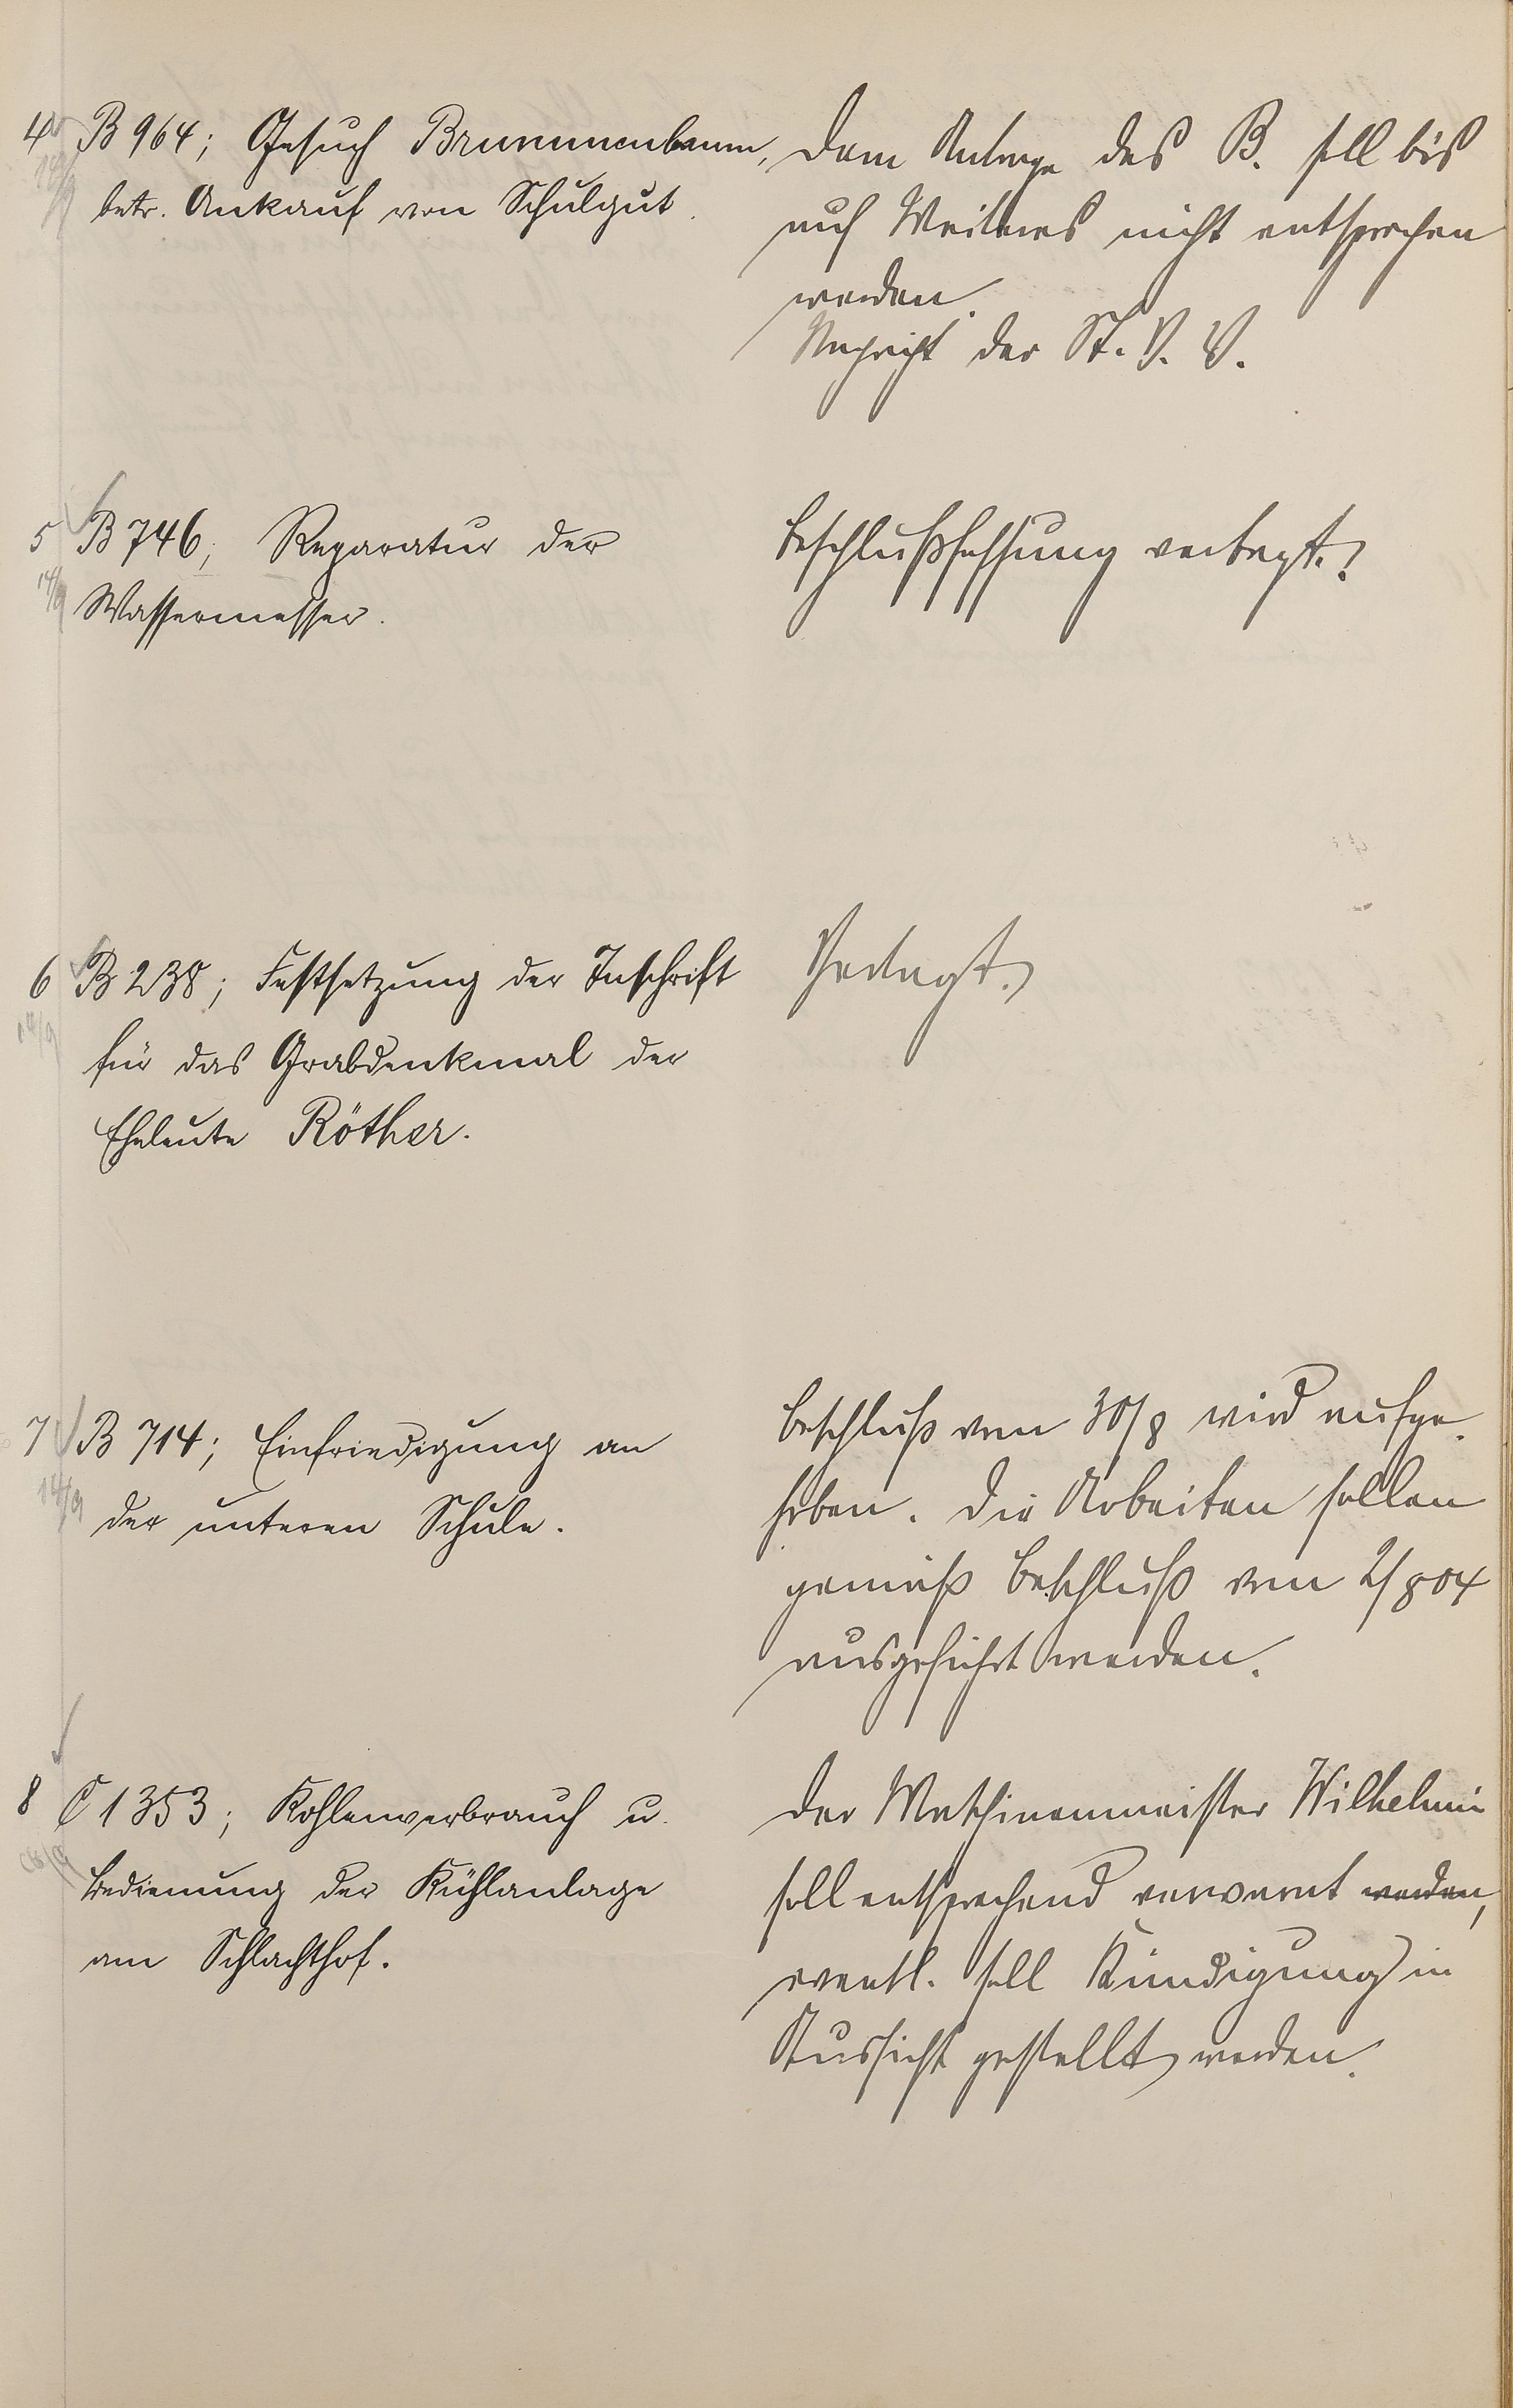 4 B 964; Gesuch Brummenbaum,
betr. Ankauf von Schulgut.
Dem Antrage des B. soll bis
auf Weiteres nicht entsprochen
werden.
der St. V. V.
5 B 746; Reparatur der
14/9
Wassermesser.
Beschlußfassung vertagt.
6 B 238; Festsetzung der Inschrift
14/9
für das Grabdenkmal der
Eheleute Röther.
Vertagt.
7 B 714; Einfriedigung an
14/9
der unteren Schule.
Beschluß vom 30/8 wird aufge-
hoben. Die Arbeiten sollen
gemäß Beschluß vom 2/8 04
ausgeführt werden.
8 C 1353; Kohlenverbrauch u.
Bedienung der Kühlanlage
am Schlachthof.
Der Maschinenmeister Wilhelmi
soll entsprechend verwarnt werden,
eventl. soll Kündigung in
Aussicht gestellt werden.